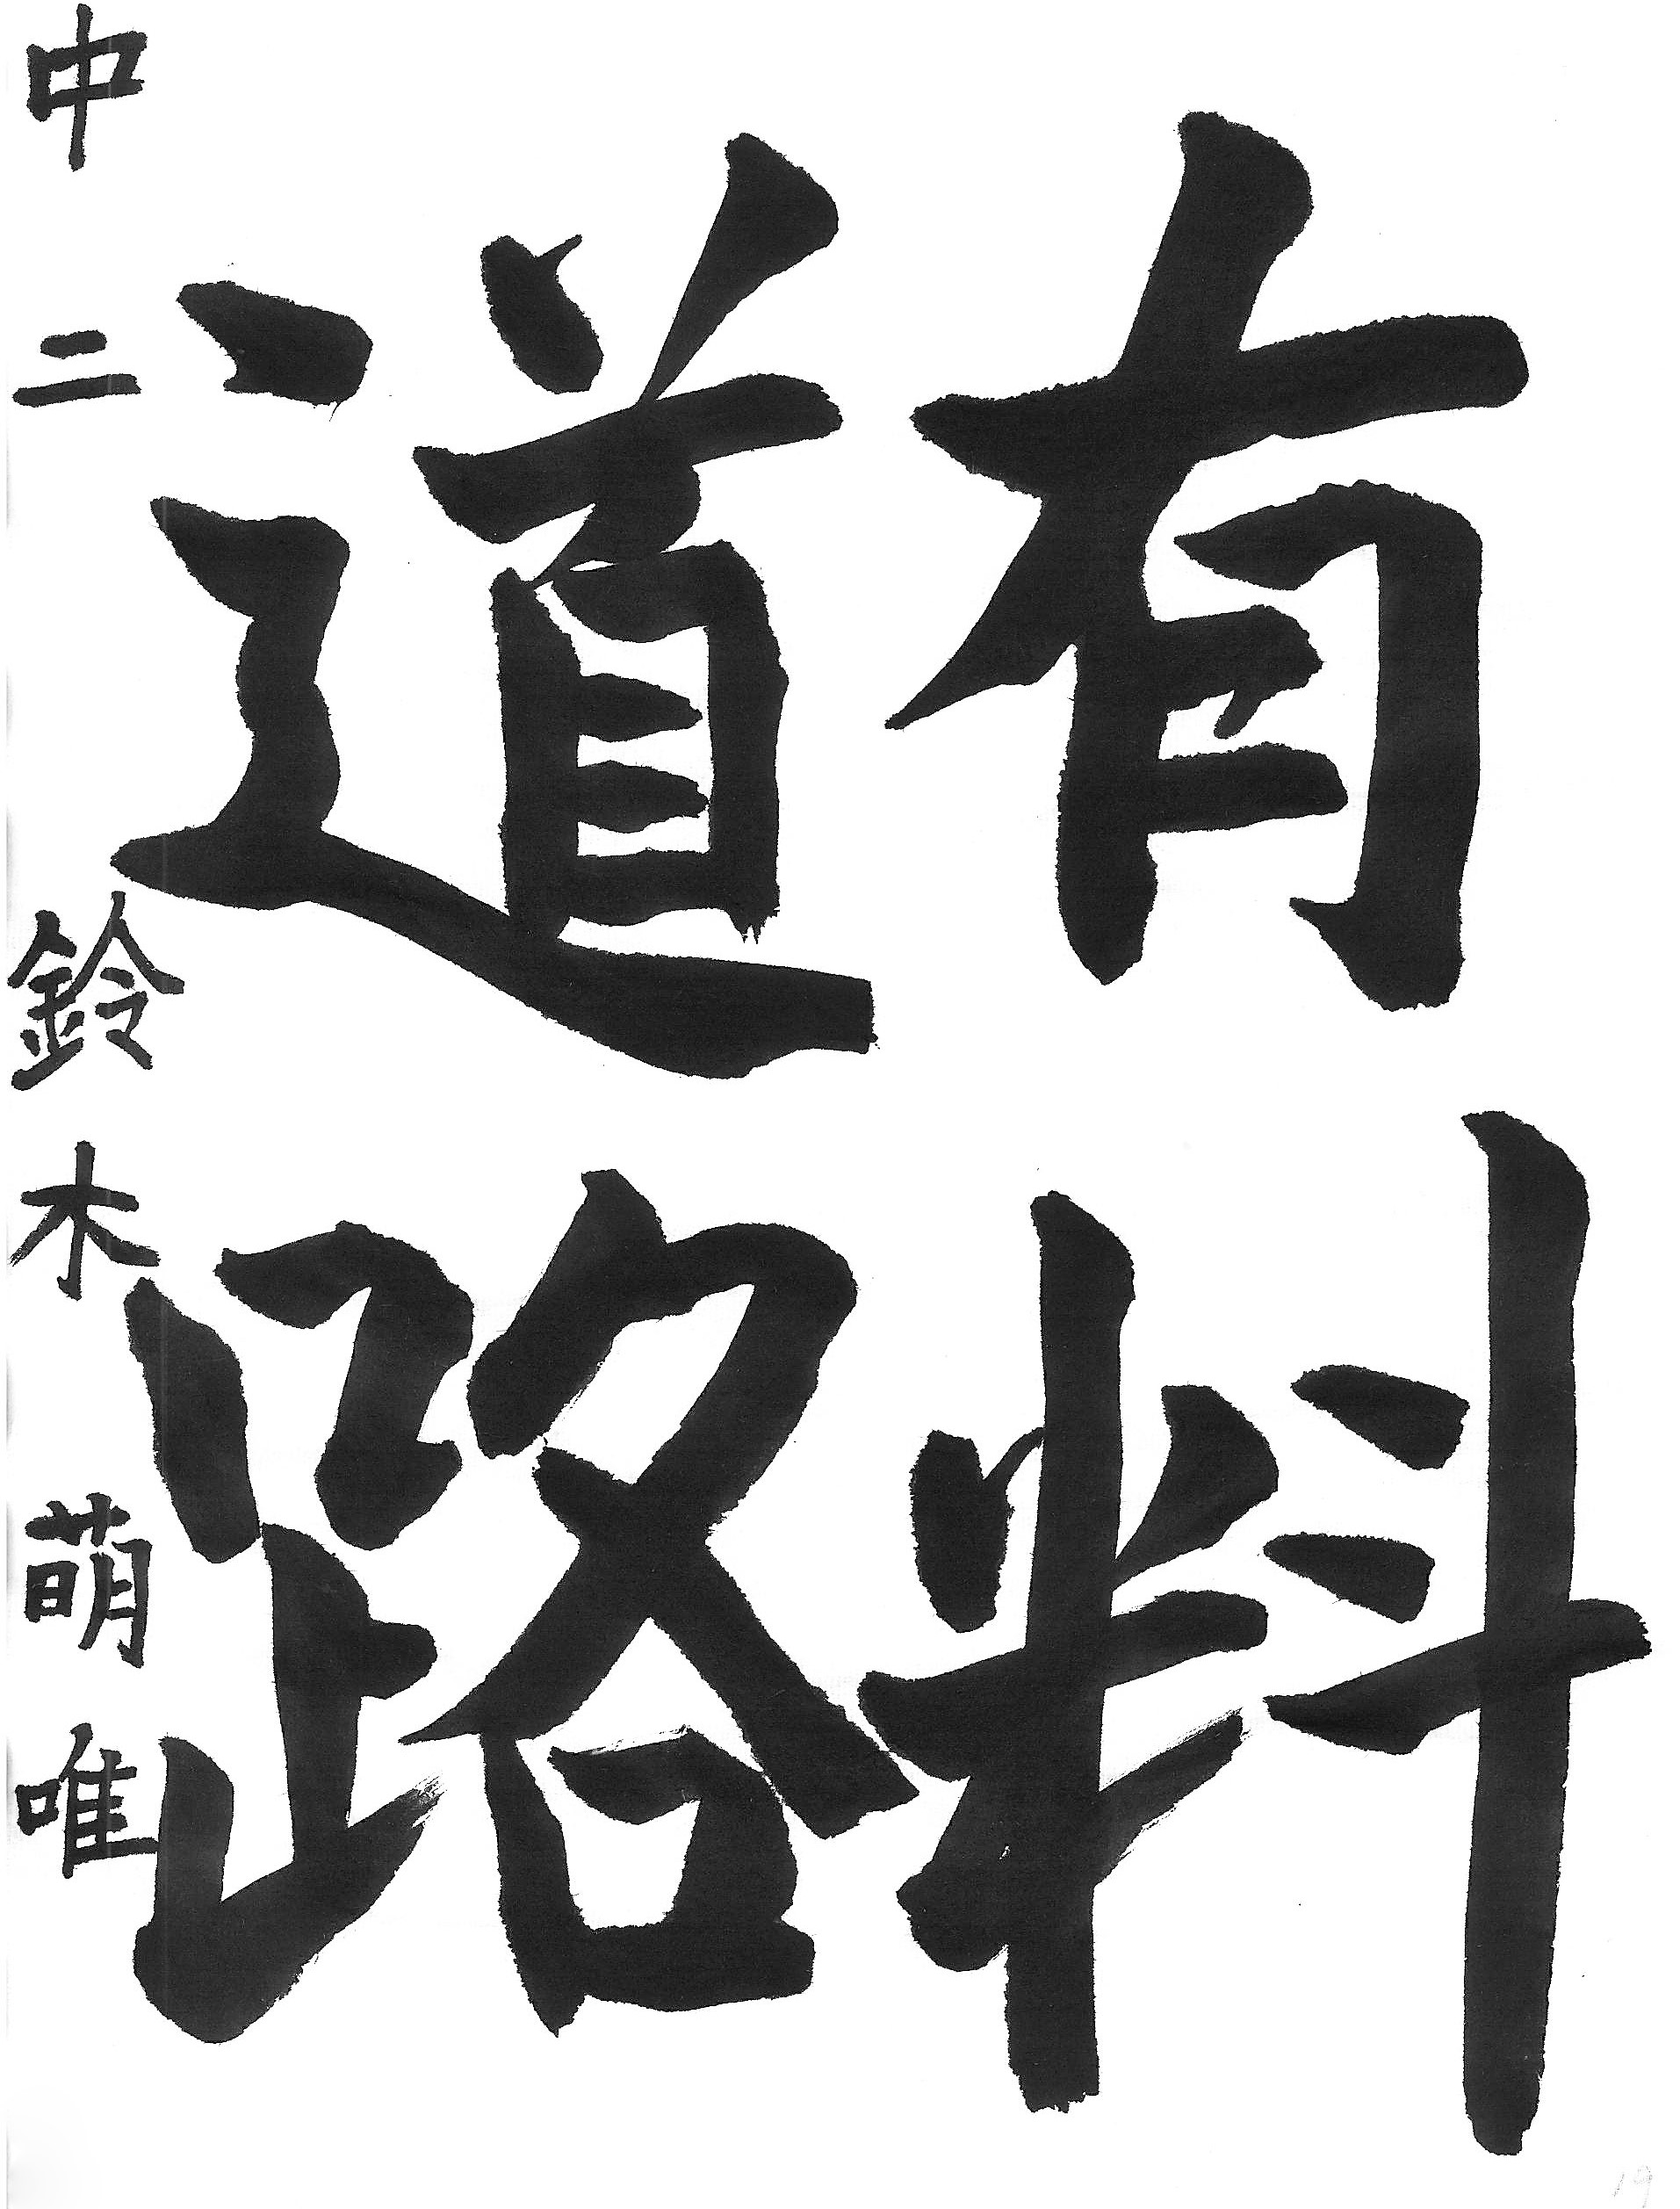 有料
道路
中二 鈴木萌唯
19